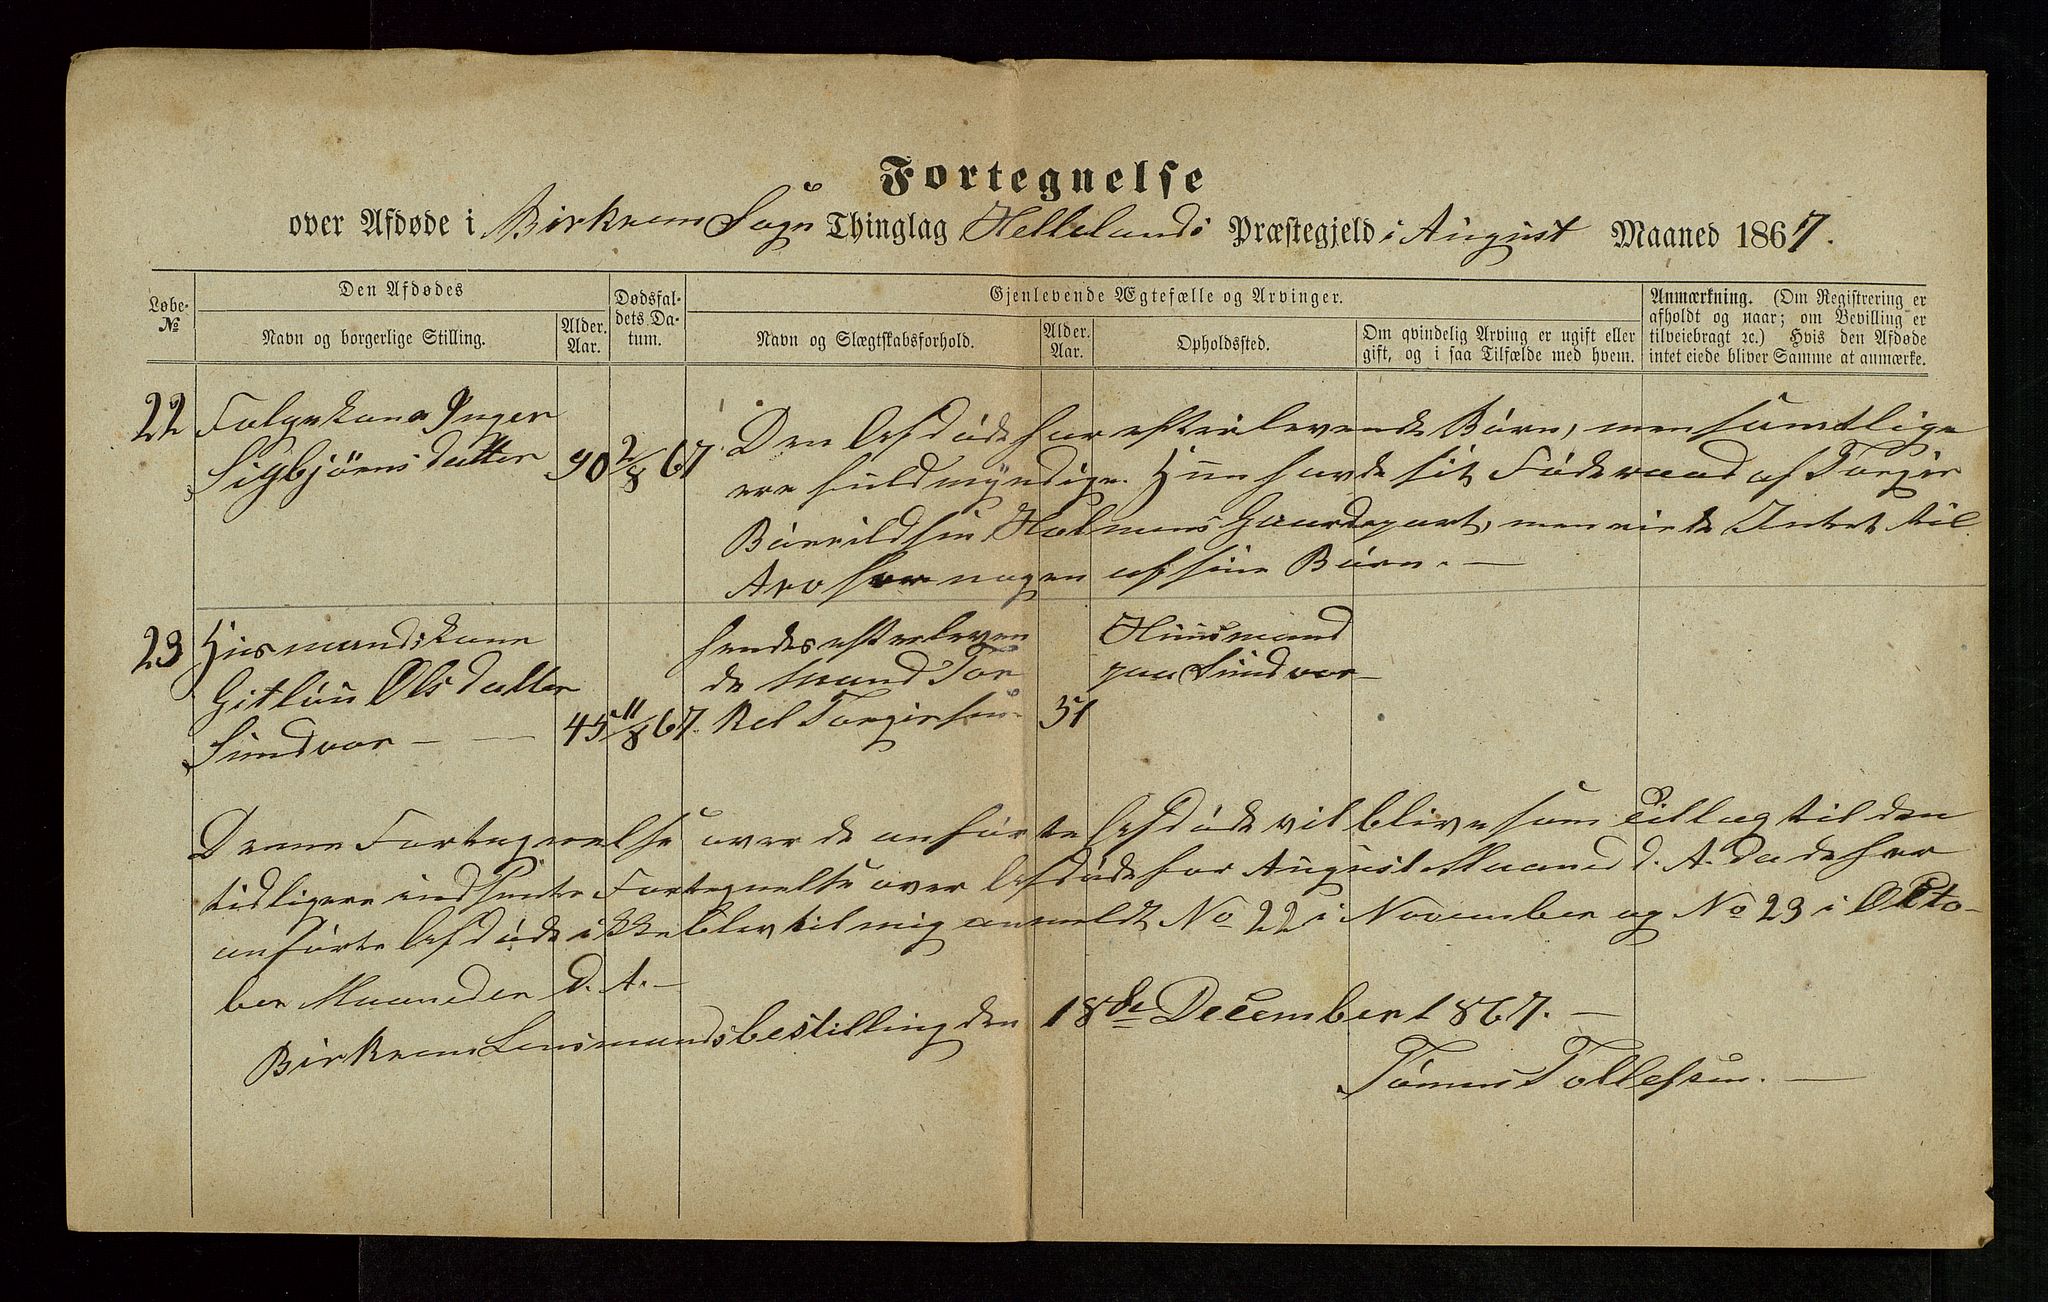 Fortegnelse
over Afdøde i Birkrem Sogn Thinglag Hellelands Præstegjeld i August Maaned 1867.
Løbe-
№
Den Afdødes
Navn og borgerlige Stilling.
Alder.
Aar.
Dødsfal-
dets Da-
tum.
Gjenlevende Ægtefælle og Arvinger.
Navn og Slægtskabsforhold.
Alder.
Aar.
Opholdssted.
Om qvindelig Arving er ugift eller
gift, og i saa Tilfælde med hvem.
Anmærkning. (Om Registrering er
afholdt og naar; om Bevilling er
tilveiebragt ɔc.) Hvis den Afdøde
intet eiede bliver Samme at anmærke.
22 Folgekone Inger
Sigbjørnsdatter 90 2/8 67.
Den Afdøde har efterlevende Børn, men samtlige
ere fuldmyndige. Hun havde sit Føderaad af Torger
Baarildsen Holmens Gaardepart, men eiede Intet til
Arv for nogen af sine Børn. —
23 Husmandskone
Gitløu Olsdatter
Sundvor — — 45 11/8 67.
hendes efterleven
de Mand Tor
kel Torgersen 51
Huusmand
paa Sundvor —
Denne Fortegnelse over de anførte Afdøde vil blive som Tillæg til den
tidligere indsendte Fortegnelse over Afdøde for August Maaned d. A. da de her
anførte Afdøde ikke blev til mig anmeldt No 22 i November og No 23 i Okto-
ber Maaneder d. A. —
Birkrem Lensmandsbestilling den 18de December 1867. —
Tønnes Tollefsen. —